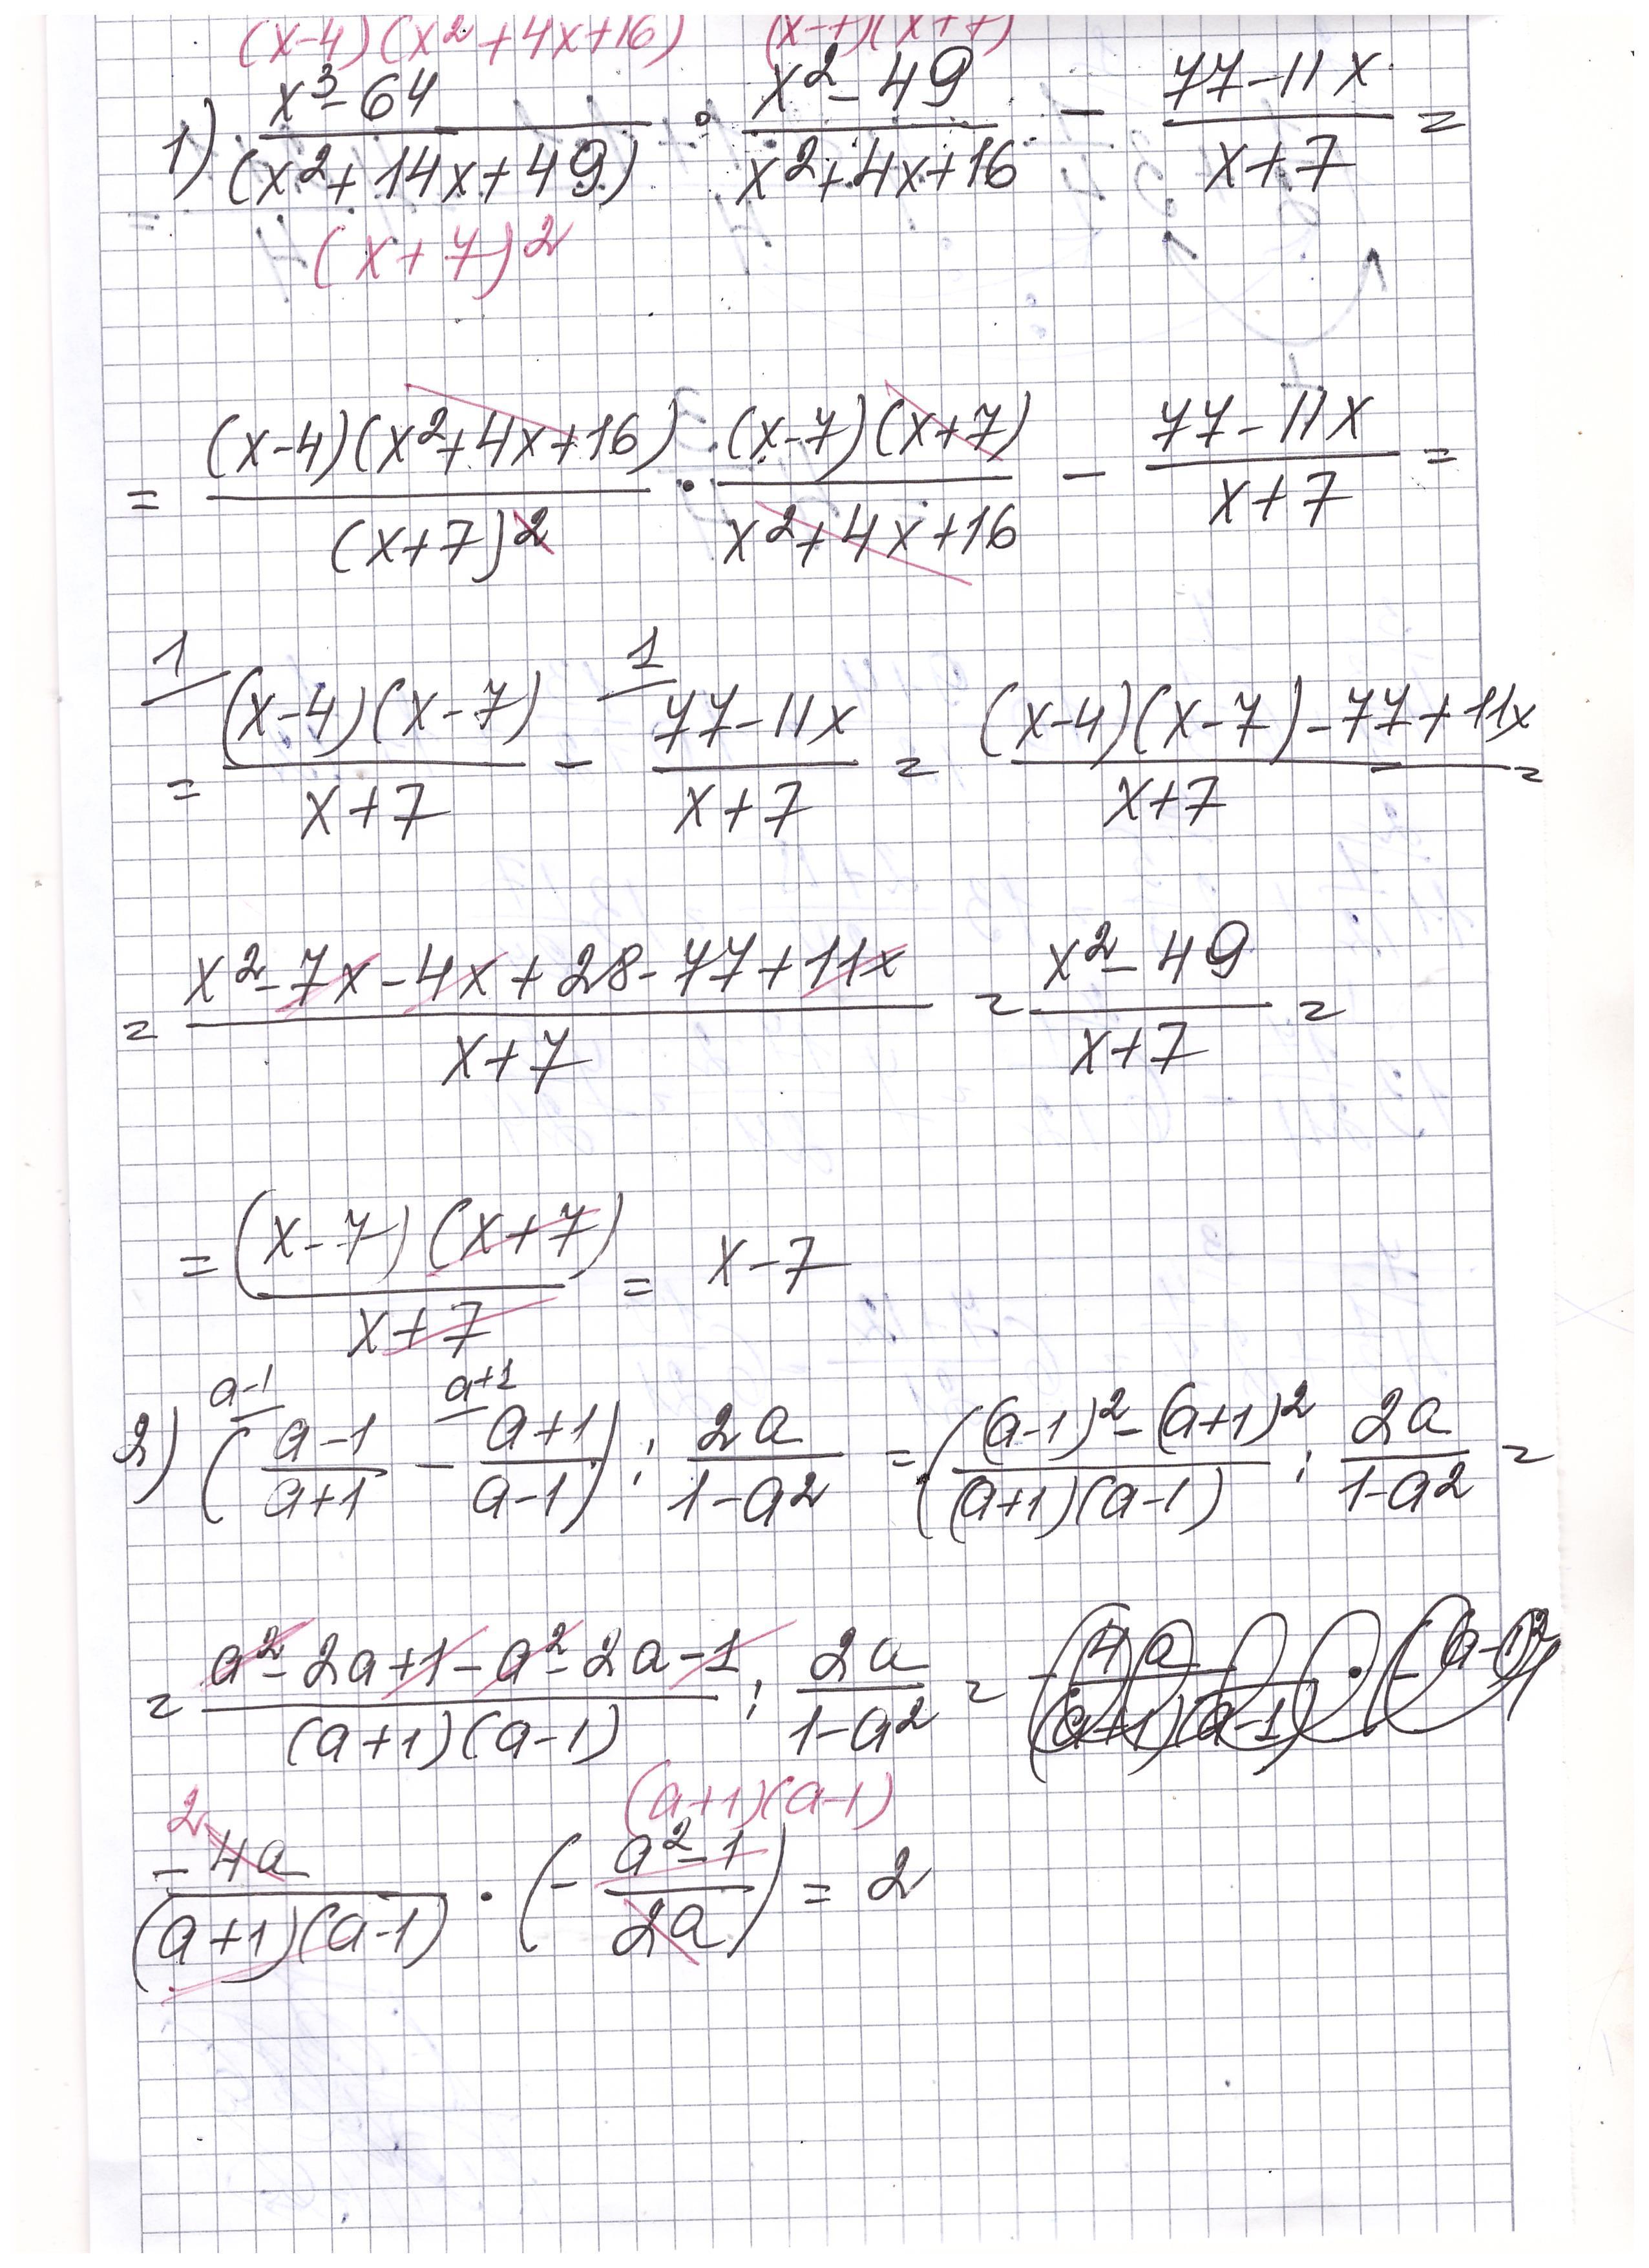 (x-4)(x²+4x+16) (x-7)(x+7)
1) (x³-64)/(x²+14x+49) · (x²-49)/(x²+4x+16) - (77-11x)/(x+7) =
(x+7)²
= (x-4)(x²+4x+16)/(x+7)² · (x-7)(x+7)/(x²+4x+16) - (77-11x)/(x+7) =
1 1
= (x-4)(x-7)/(x+7) - (77-11x)/(x+7) = ((x-4)(x-7)-77+11x)/(x+7) =
= (x²-7x-4x+28-77+11x)/(x+7) = (x²-49)/(x+7) =
= (x-7)(x+7)/(x+7) = x-7
a-1 a+1
2) ((a-1)/(a+1) - (a+1)/(a-1)) : 2a/(1-a²) = (((a-1)²-(a+1)²)/((a+1)(a-1)) : 2a/(1-a²) =
= (a²-2a+1-a²-2a-1)/((a+1)(a-1)) : 2a/(1-a²) =
2 (a+1)(a-1)
-4a/((a+1)(a-1)) · (-(a²-1)/2a) = 2